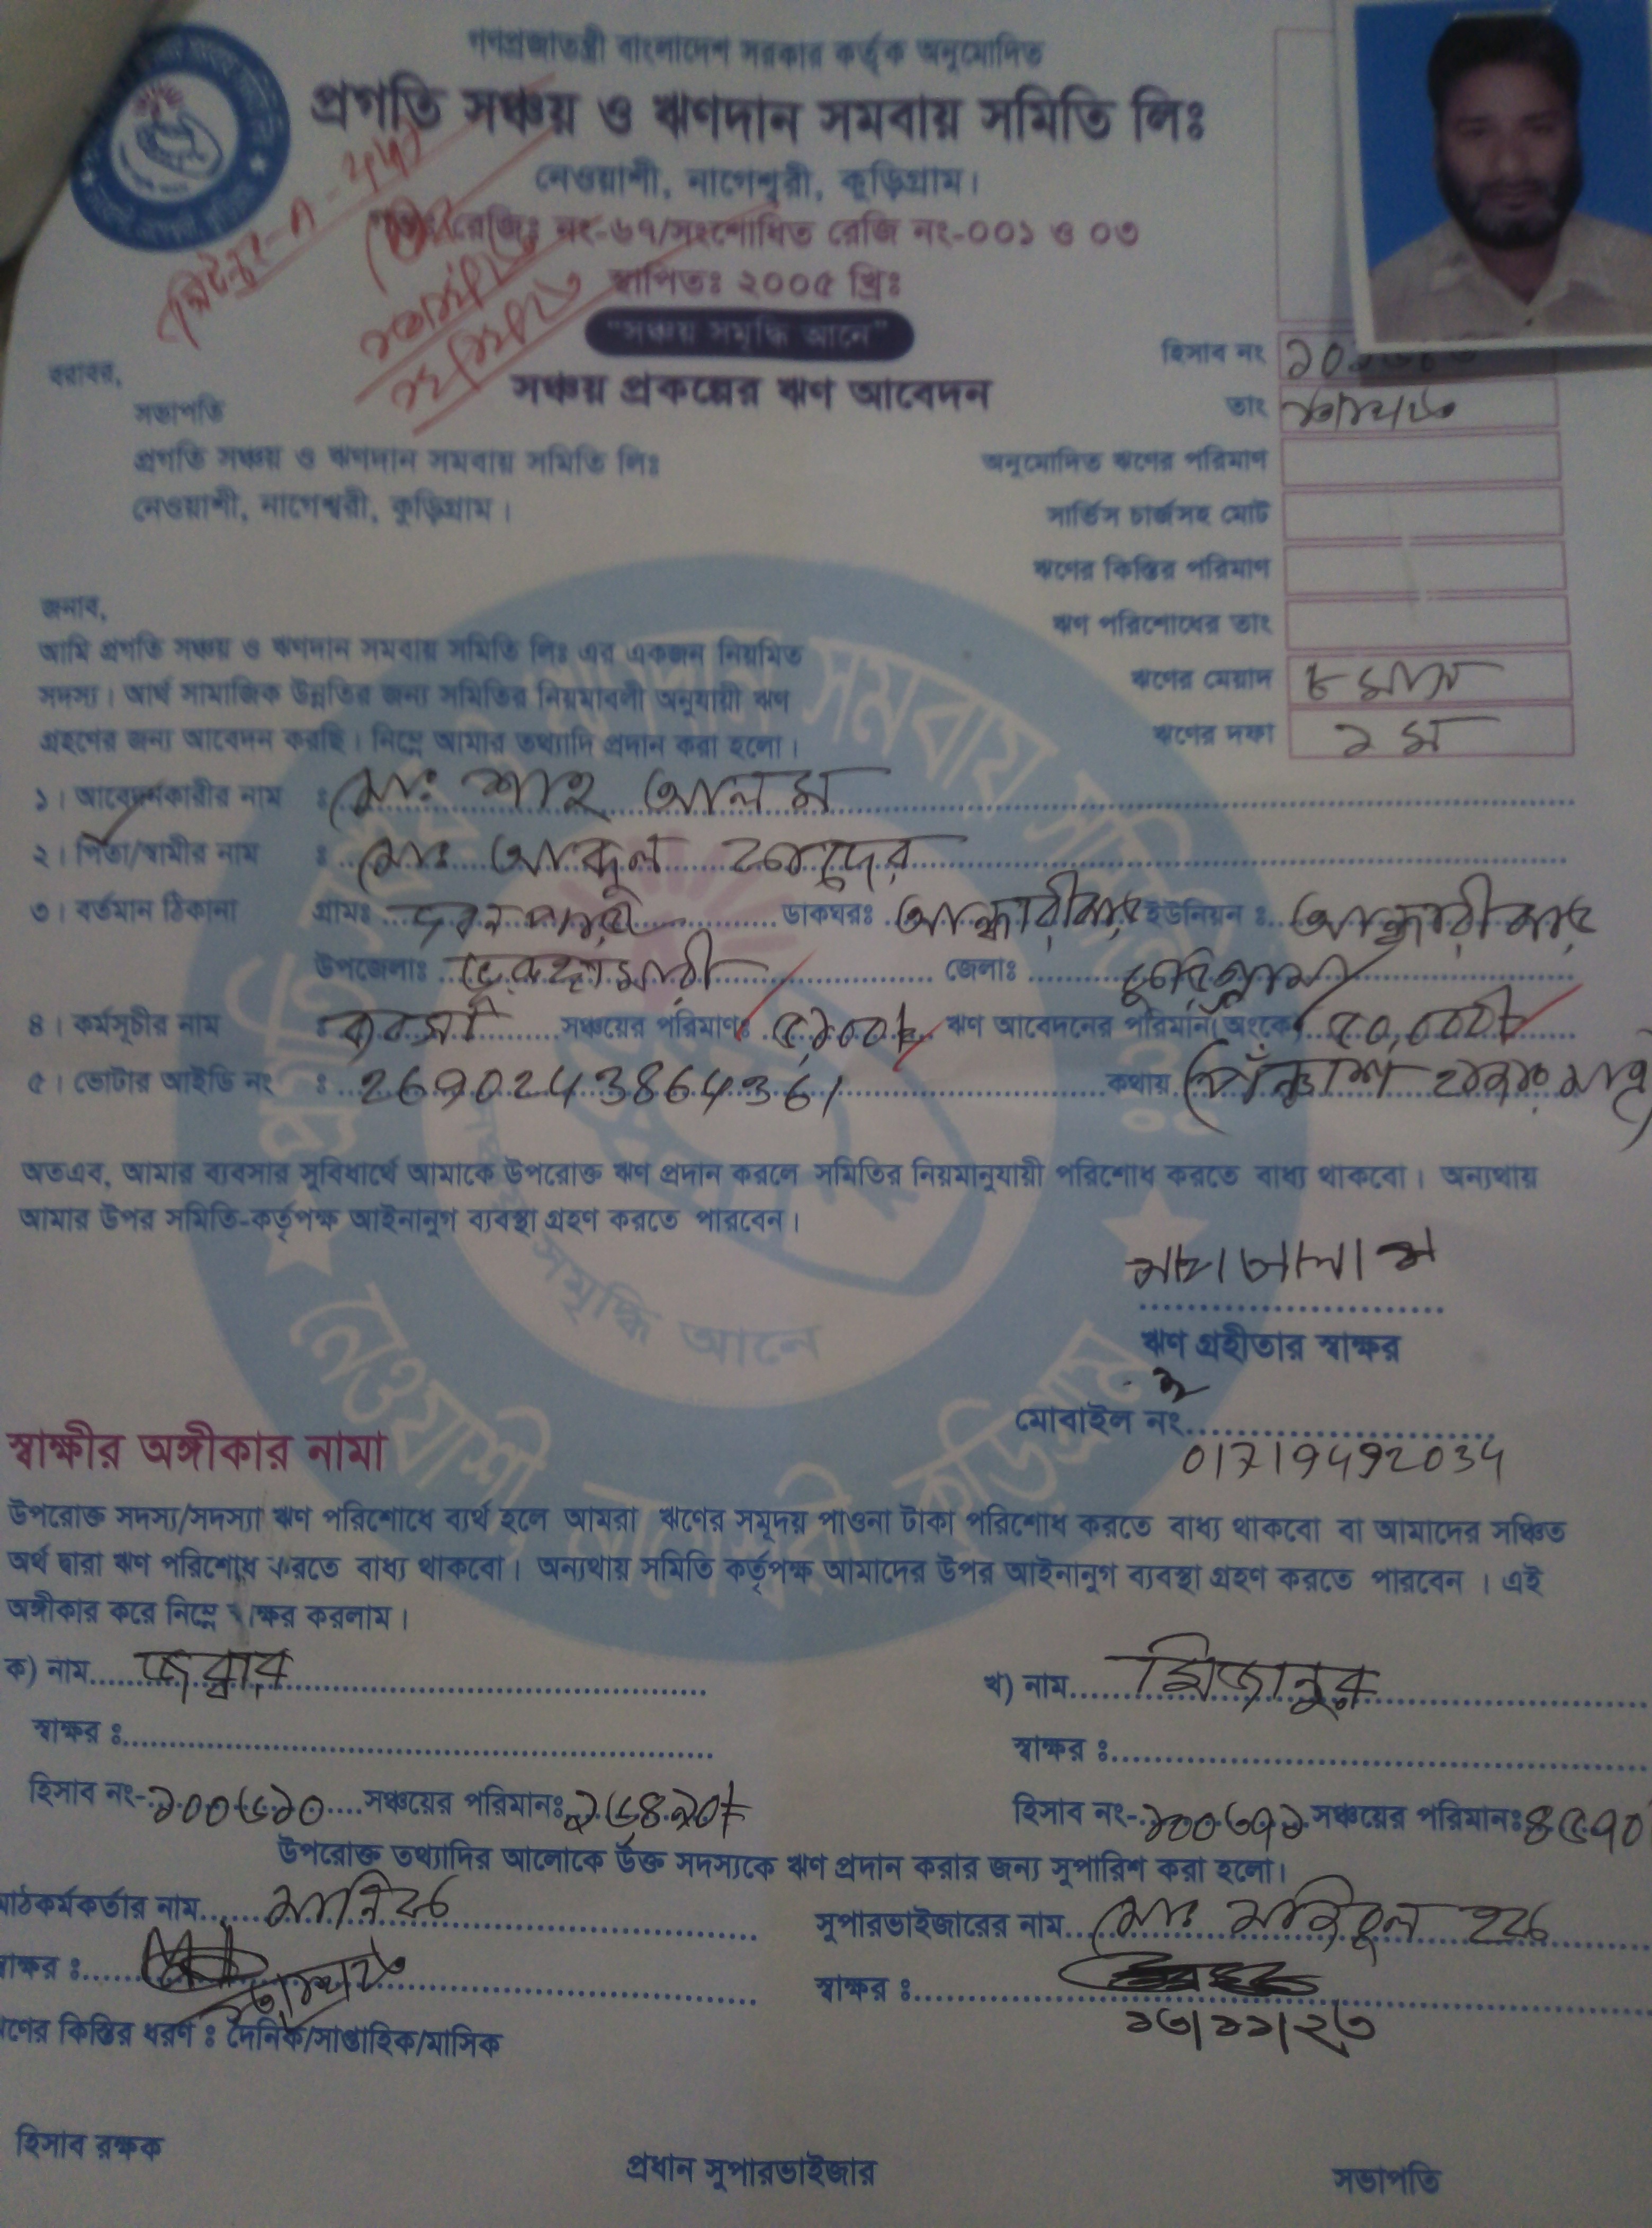 গণপ্রজাতন্ত্রী বাংলাদেশ সরকার কর্তৃক অনুমোদিত
প্রগতি সঞ্চয় ও ঋণদান সমবায় সমিতি লিঃ
নেওয়াশী, নাগেশ্বরী, কুড়িগ্রাম।
রেজিঃ নং-৬৭/সংশোধিত রেজি নং-০০১ ও ০৩
স্থাপিতঃ ২০০৫ খ্রিঃ
"সঞ্চয় সমৃদ্ধি আনে"
সঞ্চয় প্রকল্পের ঋণ আবেদন
হিসাব নং
তাং
অনুমোদিত ঋণের পরিমাণ
সার্ভিস চার্জসহ মোট
ঋণের কিস্তির পরিমাণ
ঋণ পরিশোধের তাং
ঋণের মেয়াদ ৮ মাস
ঋণের দফা ১ ম
বরাবর,
সভাপতি
প্রগতি সঞ্চয় ও ঋণদান সমবায় সমিতি লিঃ
নেওয়াশী, নাগেশ্বরী, কুড়িগ্রাম।
জনাব,
আমি প্রগতি সঞ্চয় ও ঋণদান সমবায় সমিতি লিঃ এর একজন নিয়মিত
সদস্য। আর্থ সামাজিক উন্নতির জন্য সমিতির নিয়মাবলী অনুযায়ী ঋণ
গ্রহণের জন্য আবেদন করছি। নিম্নে আমার তথ্যাদি প্রদান করা হলো।
১। আবেদনকারীর নাম : মোঃ শাহ আলম
২। পিতা/স্বামীর নাম : মোঃ আব্দুল কাদের
৩। বর্তমান ঠিকানা গ্রামঃ ডাকঘরঃ আন্ধারীঝাড় ইউনিয়ন : আন্ধারীঝাড়
উপজেলাঃ ভুরুঙ্গামারী জেলাঃ কুড়িগ্রাম
৪। কর্মসূচীর নাম : ব্যবসা সঞ্চয়ের পরিমাণঃ ৫১০০/= ঋণ আবেদনের পরিমান(অংকে) ৫০,০০০/=
৫। ভোটার আইডি নং : 2690243864361 কথায় (পঁঞ্চাশ হাজার মাত্র)
অতএব, আমার ব্যবসার সুবিধার্থে আমাকে উপরোক্ত ঋণ প্রদান করলে সমিতির নিয়মানুযায়ী পরিশোধ করতে বাধ্য থাকবো। অন্যথায়
আমার উপর সমিতি-কর্তৃপক্ষ আইনানুগ ব্যবস্থা গ্রহণ করতে পারবেন।
ঋণ গ্রহীতার স্বাক্ষর
মোবাইল নং
01719492034
স্বাক্ষীর অঙ্গীকার নামা
উপরোক্ত সদস্য/সদস্যা ঋণ পরিশোধে ব্যর্থ হলে আমরা ঋণের সমূদয় পাওনা টাকা পরিশোধ করতে বাধ্য থাকবো বা আমাদের সঞ্চিত
অর্থ দ্বারা ঋণ পরিশোধ করতে বাধ্য থাকবো। অন্যথায় সমিতি কর্তৃপক্ষ আমাদের উপর আইনানুগ ব্যবস্থা গ্রহণ করতে পারবেন । এই
অঙ্গীকার করে নিম্নে স্বাক্ষর করলাম।
ক) নাম জব্বার খ) নাম মিজানুর
স্বাক্ষর : স্বাক্ষর :
হিসাব নং- ১০০৬১০ সঞ্চয়ের পরিমানঃ হিসাব নং- ১০০৩৭১ সঞ্চয়ের পরিমানঃ ৪৫৭০
উপরোক্ত তথ্যাদির আলোকে উক্ত সদস্যকে ঋণ প্রদান করার জন্য সুপারিশ করা হলো।
মাঠকর্মকর্তার নাম মানিক সুপারভাইজারের নাম মোঃ মহিবুল হক
স্বাক্ষর : স্বাক্ষর :
১৩/১১/২৩
ঋণের কিস্তির ধরণ : দৈনিক/সাপ্তাহিক/মাসিক
হিসাব রক্ষক প্রধান সুপারভাইজার সভাপতি